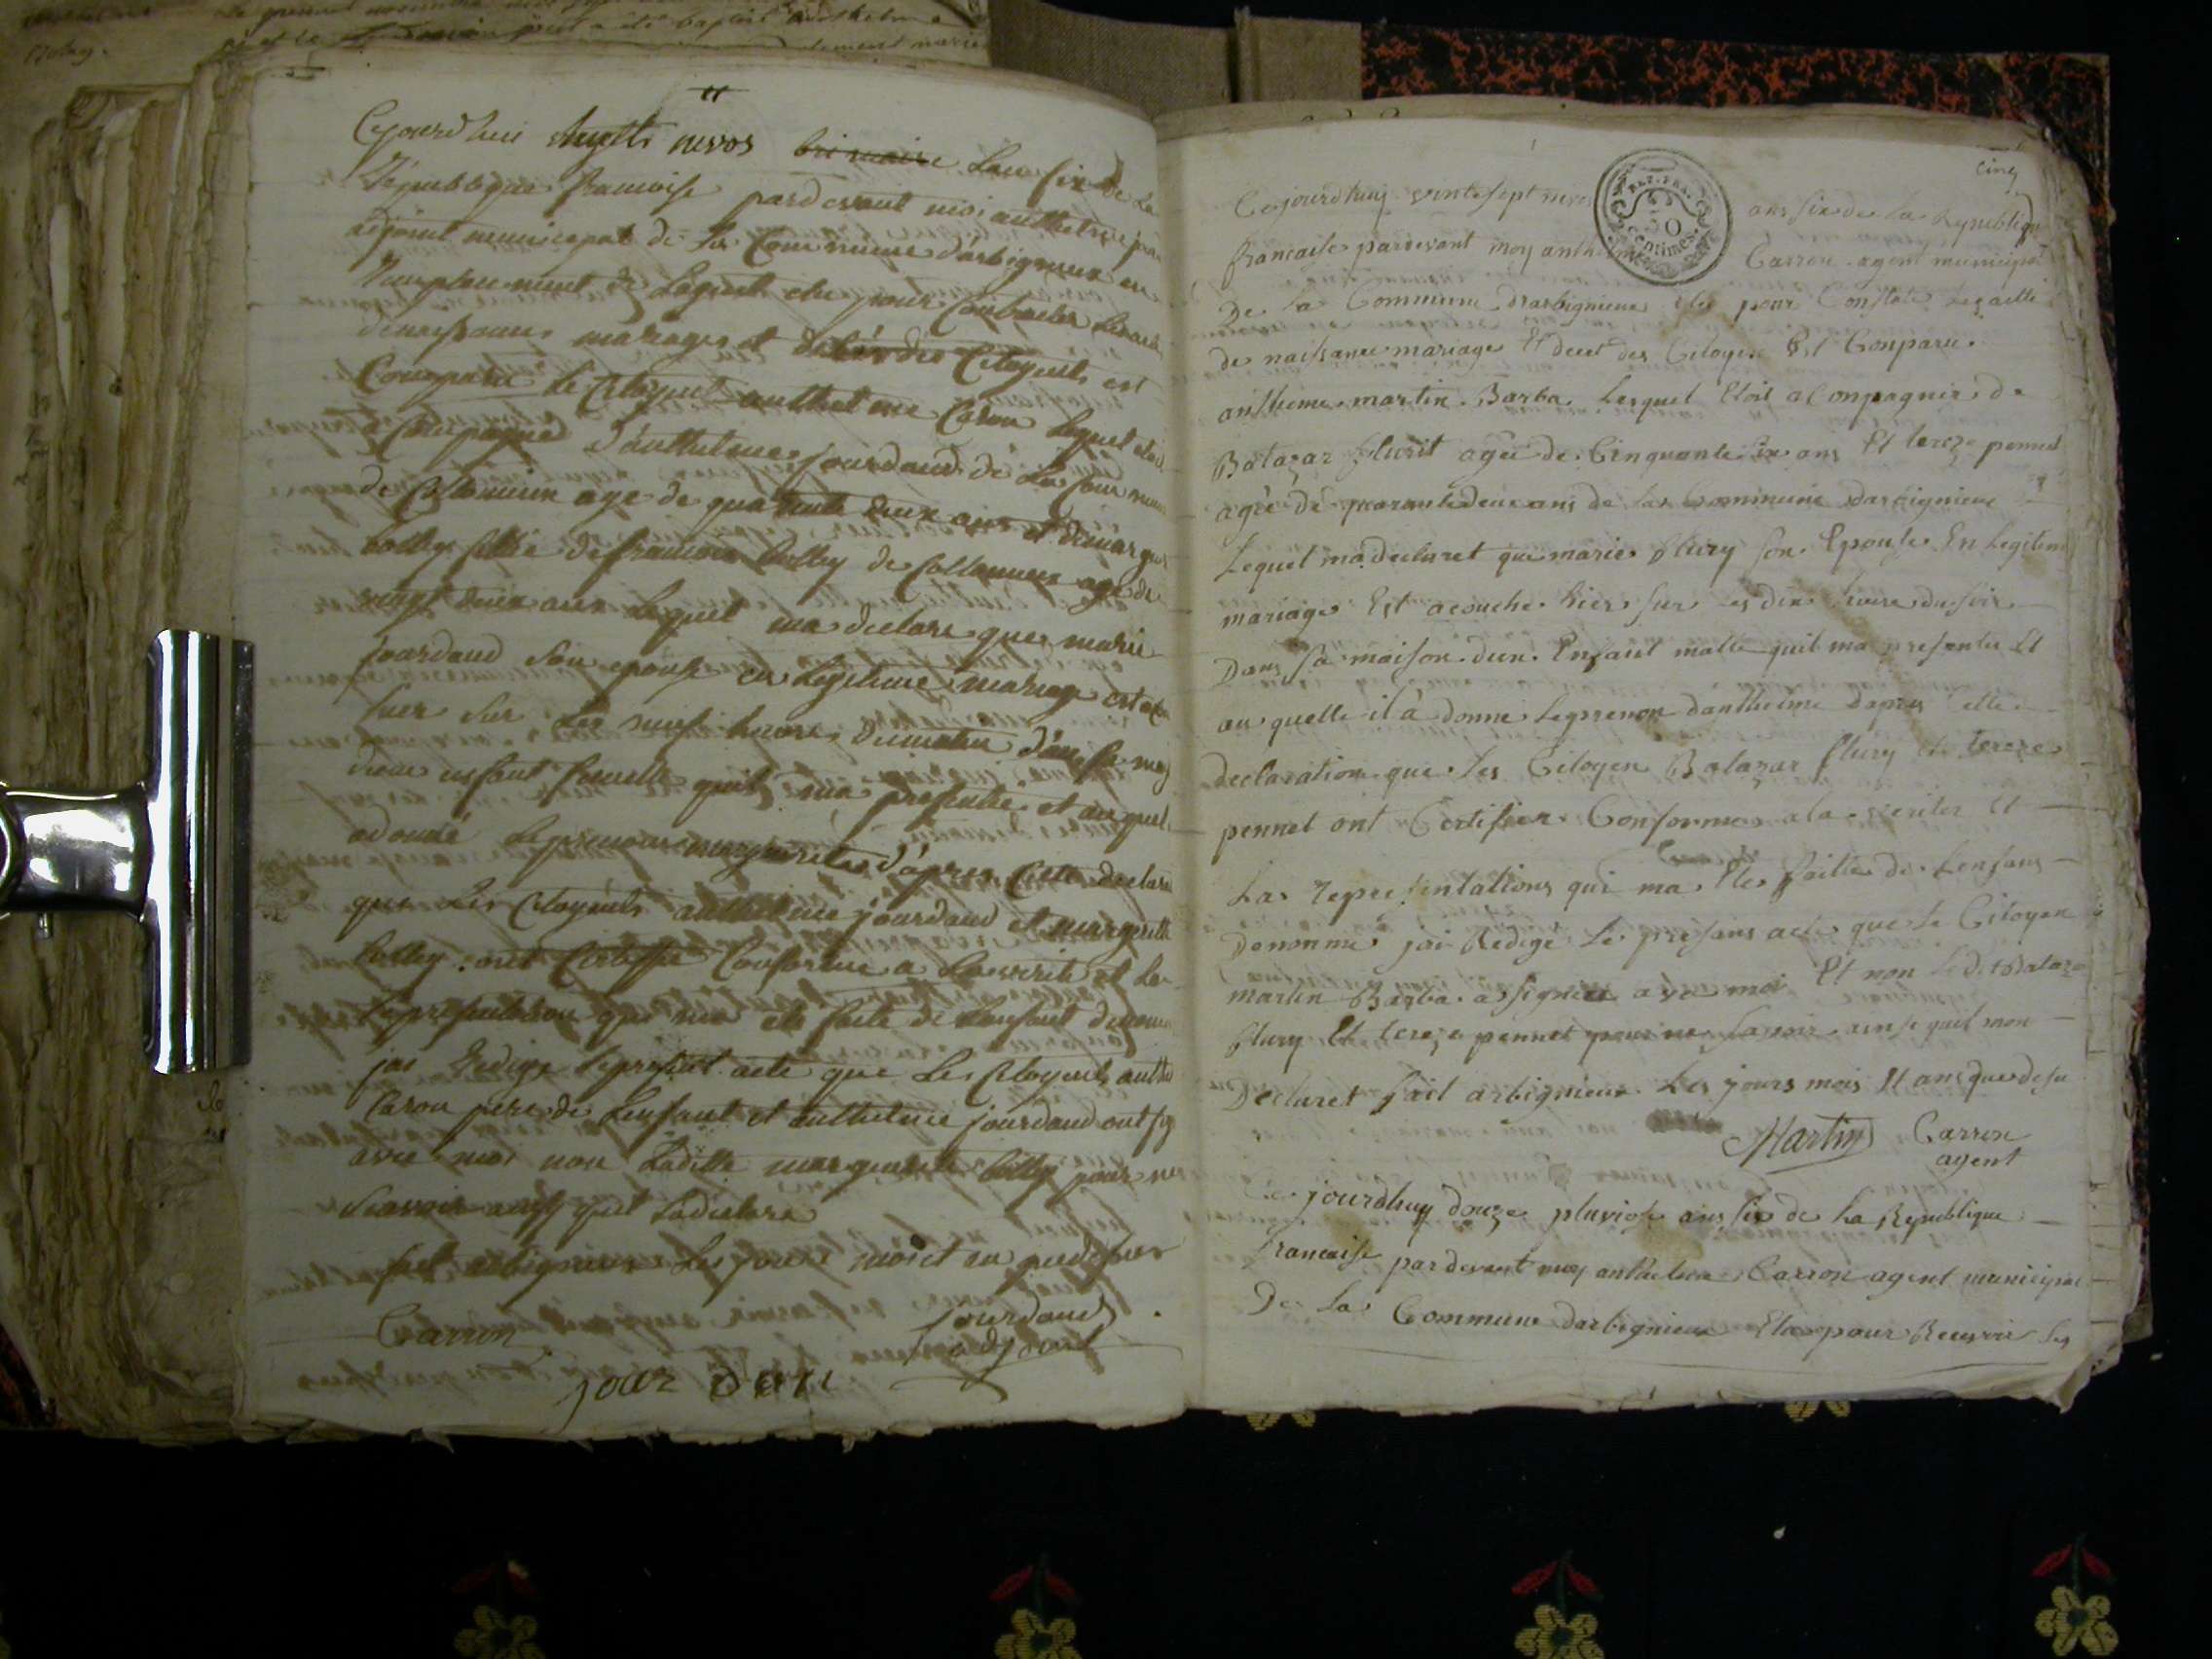 Cejourd'hui vingt nivos brimaire Lan six de La
République francoise pardevant moi anthelme jour
adjoint municipal de La Commune d'arbignieux en
Remplacement de Lagent elu pour Constater Les actes
de naissances mariages et deces des Citoyens est
Comparu le Citoyent anthelme Caron lequel etoit
acompagné d'anthelme jourdand de La Commune
de Collomieu age de quarente deux ans et de marguer
bolley fille de francois bolley de Collomieu age de
vingt deux ans Lequel ma declare que marie
jourdand Son epouse en Legitime mariage est ac
hier Sur Les neuf heures du matin d'ans sa mais
d'une enfant femelle quil ma presenté et auquel
adonné Le prenom marguerite d'apres Cette declara
que Les Citoyents anthelme jourdand et marguerite
bolley ont Certiffie Conforme a La verite et La
Representation qui ma ete faite de Lenfant denomm
jai Redige Le present acte que Les Citoyents anthel
Caron pere de Lenfant et anthelme jourdand ont sig
avec moi non Ladite marguerite bolley pour ne
Scavoir ainsy quel Ladeclare
fait arbignieux Les jour mois et an que dessus
Carron
jourdand
adjoint
jour dan
cinq
REP. FRA.
50
centimes
Ce jourdhuy vintesept nivos ans six de la Republique
francaise pardevant moy anthelme Carron agent municipal
De La Commune Darbignieux Elu pour Constate Les actte
de naissance mariage Et decet des Citoyen Est Conparu
anthleme martin Barba Lesquel Etoit aConpagnier de
Batazar flurit agée de Cinquante six ans Et tereze pennet
agée de quarante deux ans de La Commune Darbignieux
Lequel ma declaret que marie flury son Epouse En Legitem
mariage Est acouche hier sur les dix heure du soir
Dans sa maison dun Enfant malle quil ma presenter Et
au quelle il à donné Le prenon danthelme dapres Cette
declaration que les Citoyen Balazar flury Et tereze
pennet ont Certifier Conforme a la veriter Et
La Representations qui ma Ete faitte de Lenfans
Denommé jai Redigé Le presans acte que Le Citoyen
martin Barba a signer avec moi Et non Ledit Balaza
flury Et tereze pennet pour ne savoir ainsi quil mon
Declaret fait arbignieux Les jours mois Et ans que desu
Martin Carron
agent
Ce jourdhuy douze pluviose ans six de La Republique
francaise pardevant moy anthelme Carron agent municipal
De La Commune Darbignieux Elu pour Recevoir Les